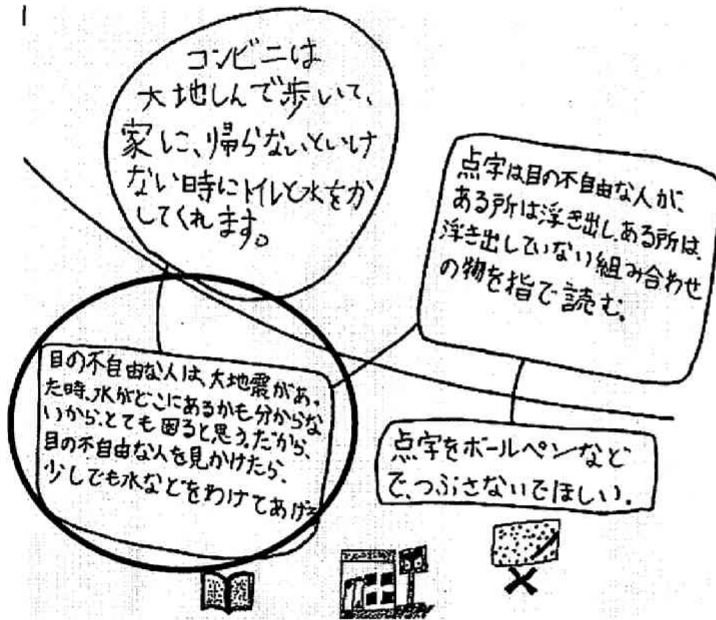 コンビニは
大地しんで歩いて、
家に、帰らないといけ
ない時にトイレと水をか
してくれます。
点字は目の不自由な人が、
ある所は浮き出し、ある所は、
浮き出していない組み合わせ
の物を指で読む。
目の不自由な人は、大地震があっ
た時、水がどこにあるかも分からな
いから、とても困ると思う。だから、
目の不自由な人を見かけたら、
少しでも水などをわけてあげ
点字をボールペンなど
で、つぶさないでほしい。